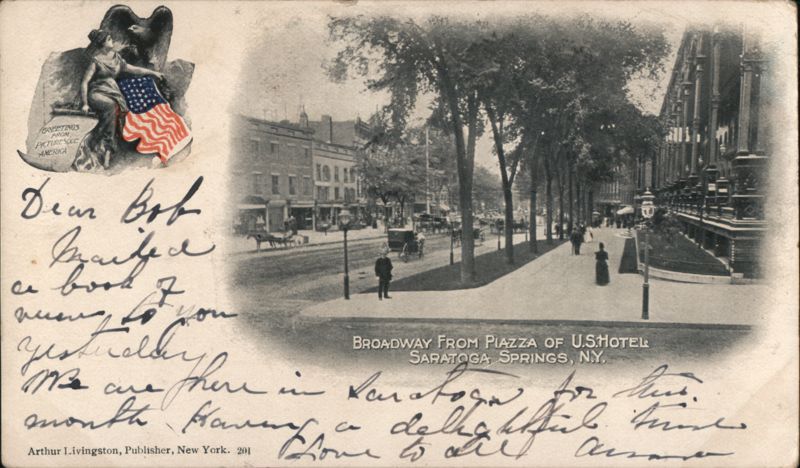 GREETINGS
FROM
PICTURESQUE
AMERICA
Dear Bob
Mailed
a book of
views to you
yesterday
BROADWAY FROM PIAZZA OF U.S. HOTEL
SARATOGA SPRINGS, N.Y.
We are here in Saratoga for this
month. Having a delightful time
Love to all
Arthur Livingston, Publisher, New York. 201